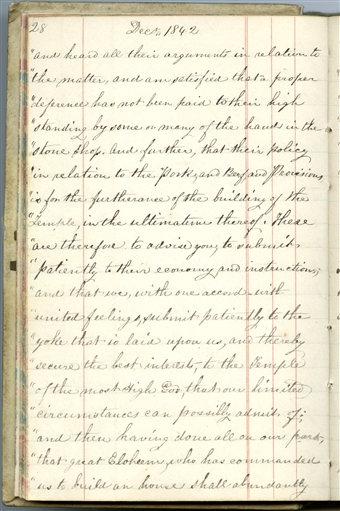 28 Dec 1842
"and heard all their arguments in relation to
"the matter, and am satisfied that a proper
"deference has not been paid to their high
"standing by some or many of the hand in the
"stone shop. And further, that their policy
"in relation to the Pork, and Beef and Provisions
"is for the furtherance of the building of the
"Temple, in the ultimatum thereof. These
"are therefore to advise you, to submit
"patiently to their economy and instructions;
"and that we, with one accord with
"united feelings, submit patiently to the
"yoke that is laid upon us, and thereby
"secure the best interests, to the Temple
"of the most High God, that our limited
"circumstances can possibly admit of;
"and then having done all on our part,
"that great Eloheem, who has commanded
"us to build an house shall abundantly